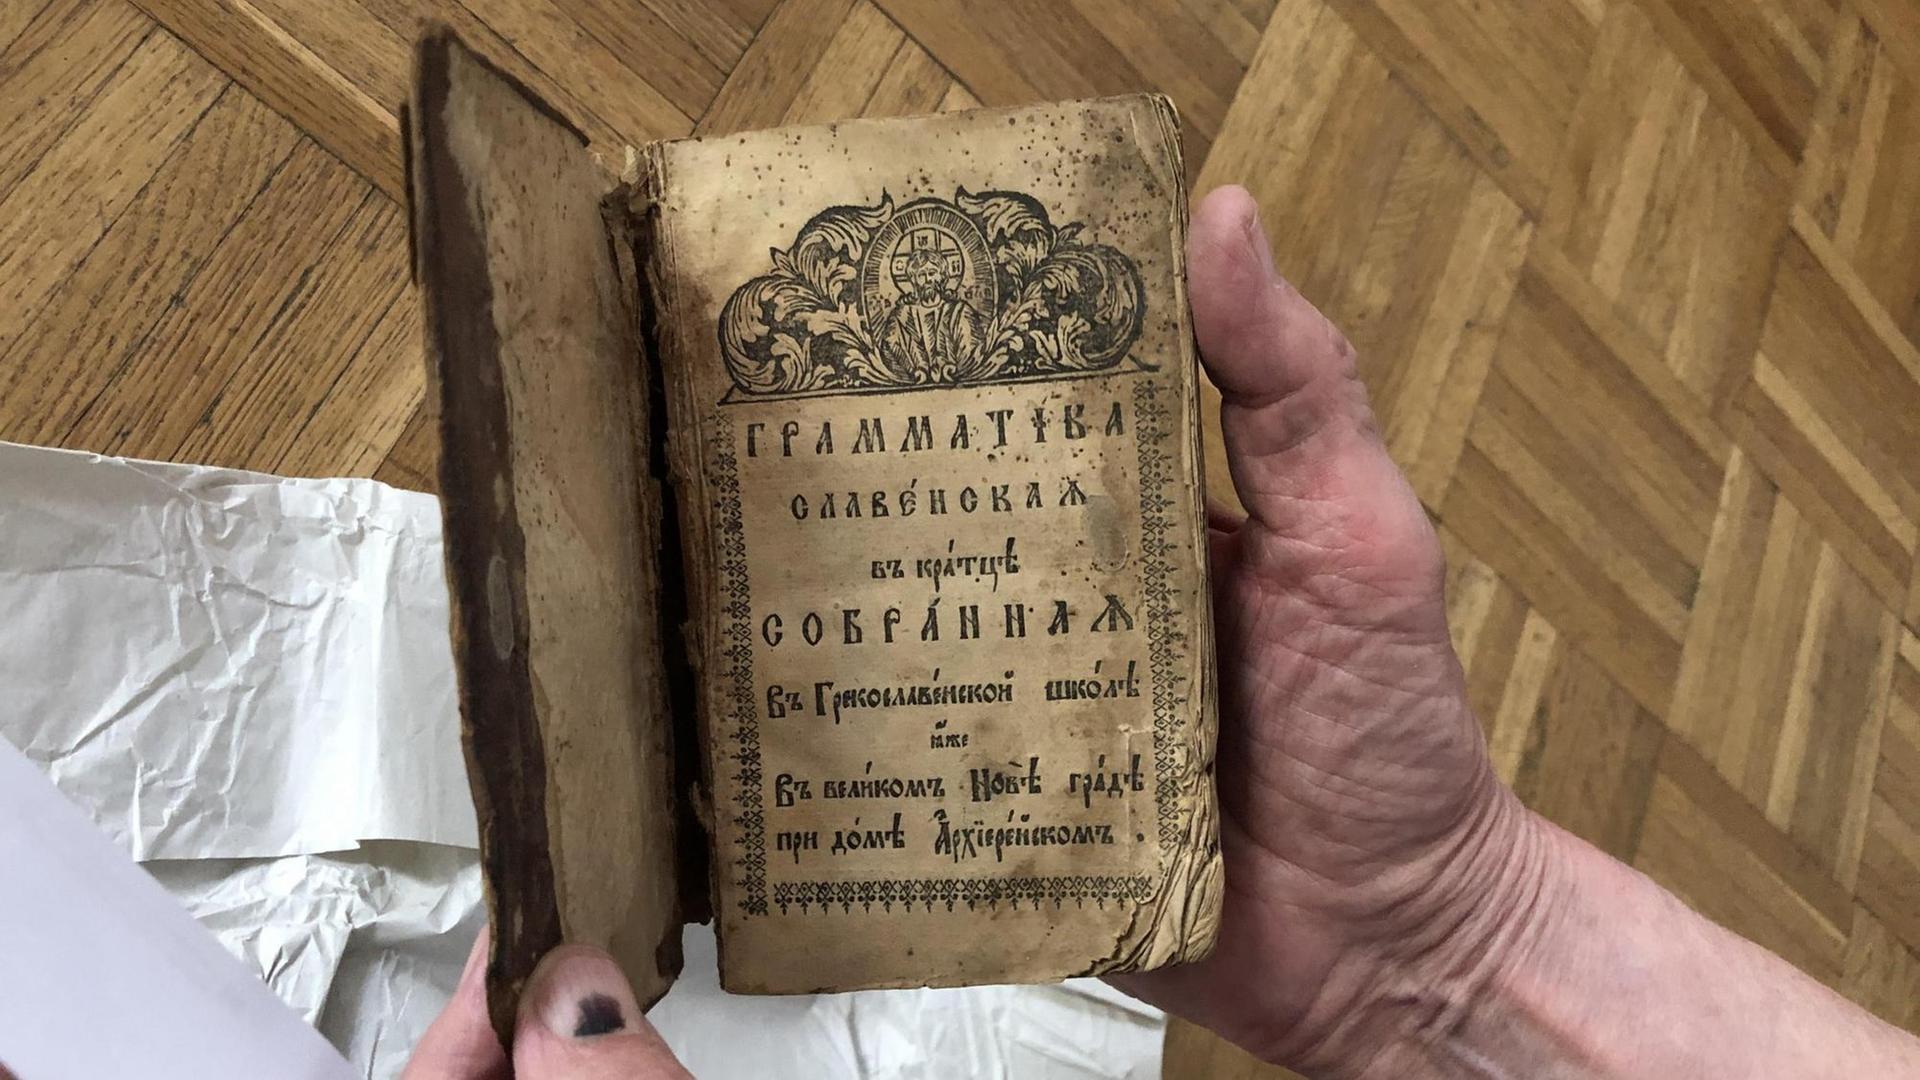 ГРАММАТІКА
СЛАВЕ́НСКАѦ
въ кра́тцѣ
СОБРА́ННАѦ
Въ Грекославе́нской шко́лѣ
ꙗ҆́же
Въ вели́комъ Но́вѣ гра́дѣ
при до́мѣ А҆рхїере́йскомъ .